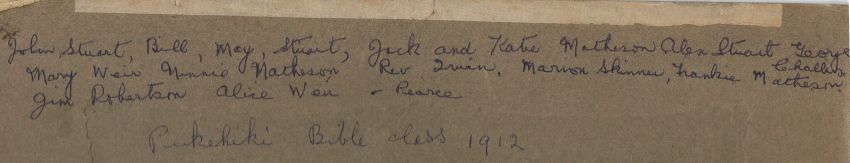 John Stuart, Bill, May, Stuart, Jack and Katie Matheson Alex Stuart George Challis
Mary Weir Minnie Matheson Rev Irwin, Marion Skinner, Frankie Matheson
Jim Robertson Alice Weir - Pearce
Pukehiki Bible class 1912